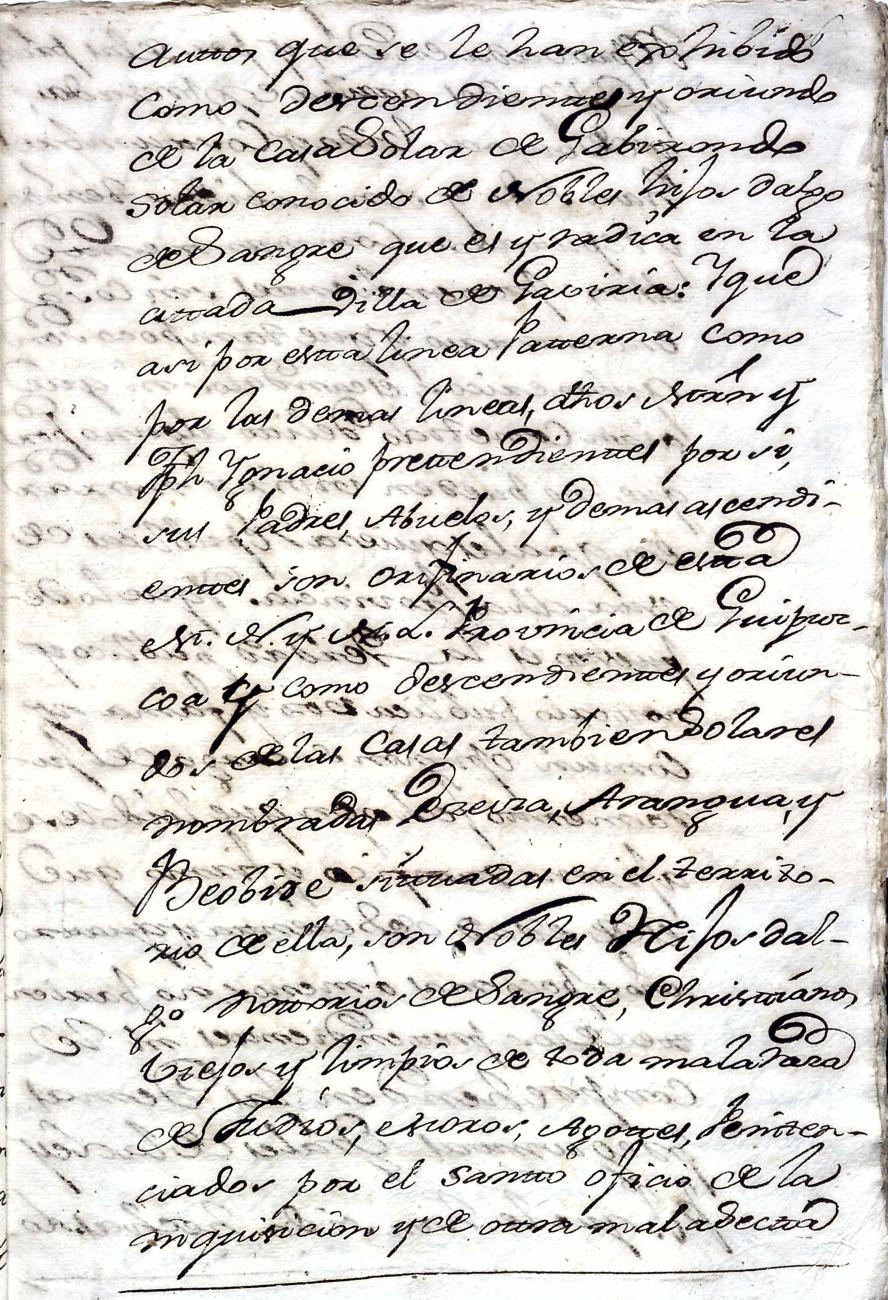 auttos que se le han exphibido
como descendienttes y oriundo
de la Casa Solar de Gabirondo
Solar conocido de Nobles hijos dalgo
de Sangre que es y radica en la
cittada Villa de Gaviria: Y que
asi por estta linea Patterna como
por las demas lineas, dhos Mrn y
Jph Ygnacio prettendienttes por si,
sus Padres, Abuelos, y demas ascendi-
enttes son orijinarios de estta
M. N. y M. L. Provincia de Guipuz-
coa y como descendienttes y oriun-
dos de las Casas tambien Solares
nombradas Ezeiza, Arangua, y
Beobide sittuadas en el territo-
rio de ella, son Nobles Hijos dal-
go nottorios de Sangre, Christtianos
Viejos y limpios de toda mala raza
de Judios, Moros, Agottes, Peniten-
ciados por el Santto oficio de la
inquisicion y de ottra mala Sectta